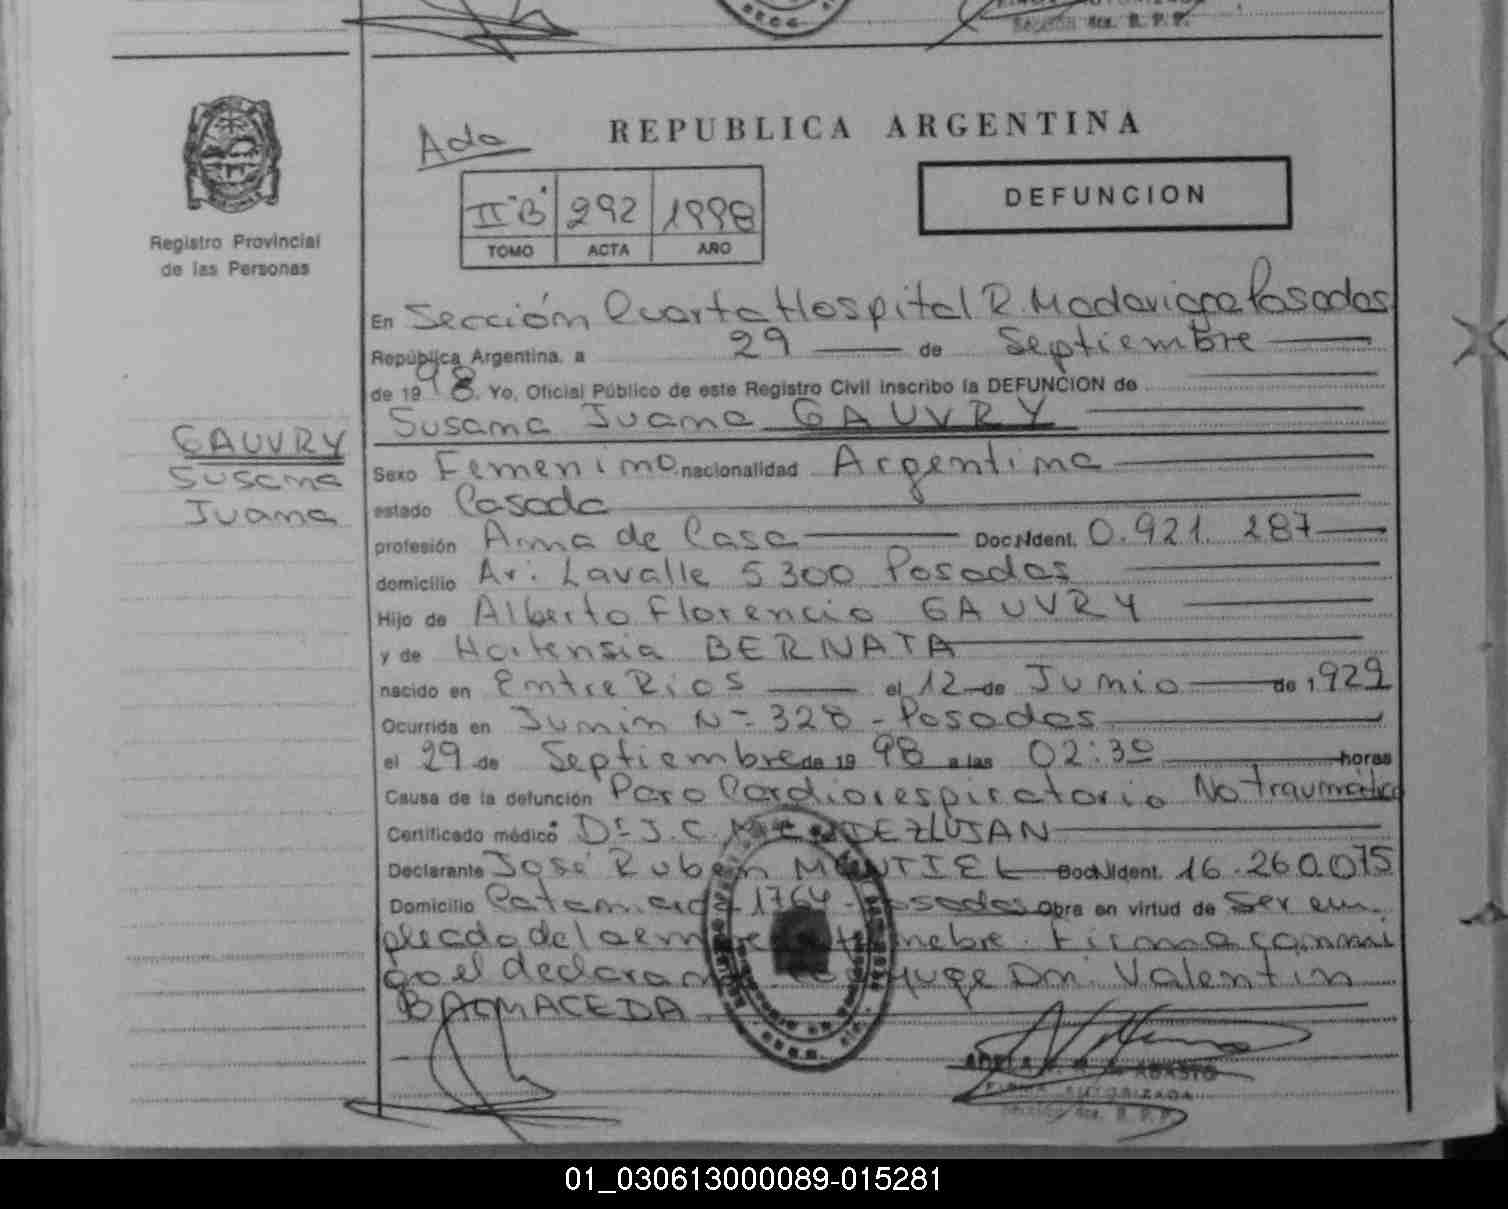 Secc. 4ta. R. P. P.
Ada
REPUBLICA ARGENTINA
DEFUNCION
II "B" 292 1998
TOMO ACTA AÑO
Registro Provincial
de las Personas
En Sección Cuarta Hospital R. Madariaga Posadas
República Argentina, a 29 de Septiembre
de 1998. Yo, Oficial Público de este Registro Civil inscribo la DEFUNCION de
Susana Juana GAUVRY
GAUVRY
Susana
Juana
Sexo Femenino nacionalidad Argentina
estado Casada
profesión Ama de Casa Doc. Ident. 0.921.287
domicilio Av. Lavalle 5300 Posadas
Hijo de Alberto Florencio GAUVRY
y de Hortensia BERNATA
nacido en Entre Rios el 12 de Junio de 1.929
Ocurrida en Junin N= 328 - Posadas
el 29 de Septiembre de 1998 a las 02:30 horas
Causa de la defunción Paro Cardiorespiratorio No traumático
Certificado médico Dr J.C. MENDEZ LUJAN
Declarante José Ruben MONTIEL Doc. Ident. 16.260.075
Domicilio Catamarca 1764 - Posadas Obra en virtud de Ser em
pleado de la empresa fúnebre. Firma conmi
go el declarante Conyuge Dn. Valentin
BALMACEDA
FIRMA AUTORIZADA
Sección 4ta. R. P. P.
01_030613000089-015281